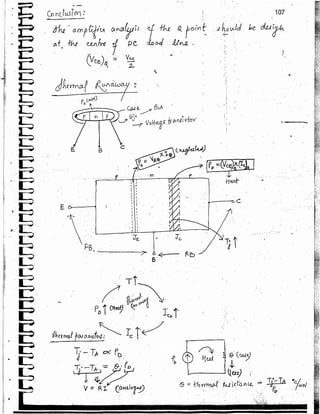 107
Conclusion:
the amplifier analysis of the Q point should be design
at the centre of DC load line.
(VCE)Q = VCC / 2
Thermal Runaway:
Case
But
Voltage transistor
P n P
E B C
(neglected)
PD = VBE × IB
PD = (VCB) × (IC)
Heat
P n P
E C
JE JC
Tj ↑
FB RB
B
T↑
PD↑ (Heat) Thermal
ICO↑
IC↑
Thermal parameter:
Tj − TA ∝ PD
Tj − TA = θ PD
V = R I (analogus)
PD Heat θ (case)
(less)
θ = thermal resistance = Tj − TA / PD °C/mW